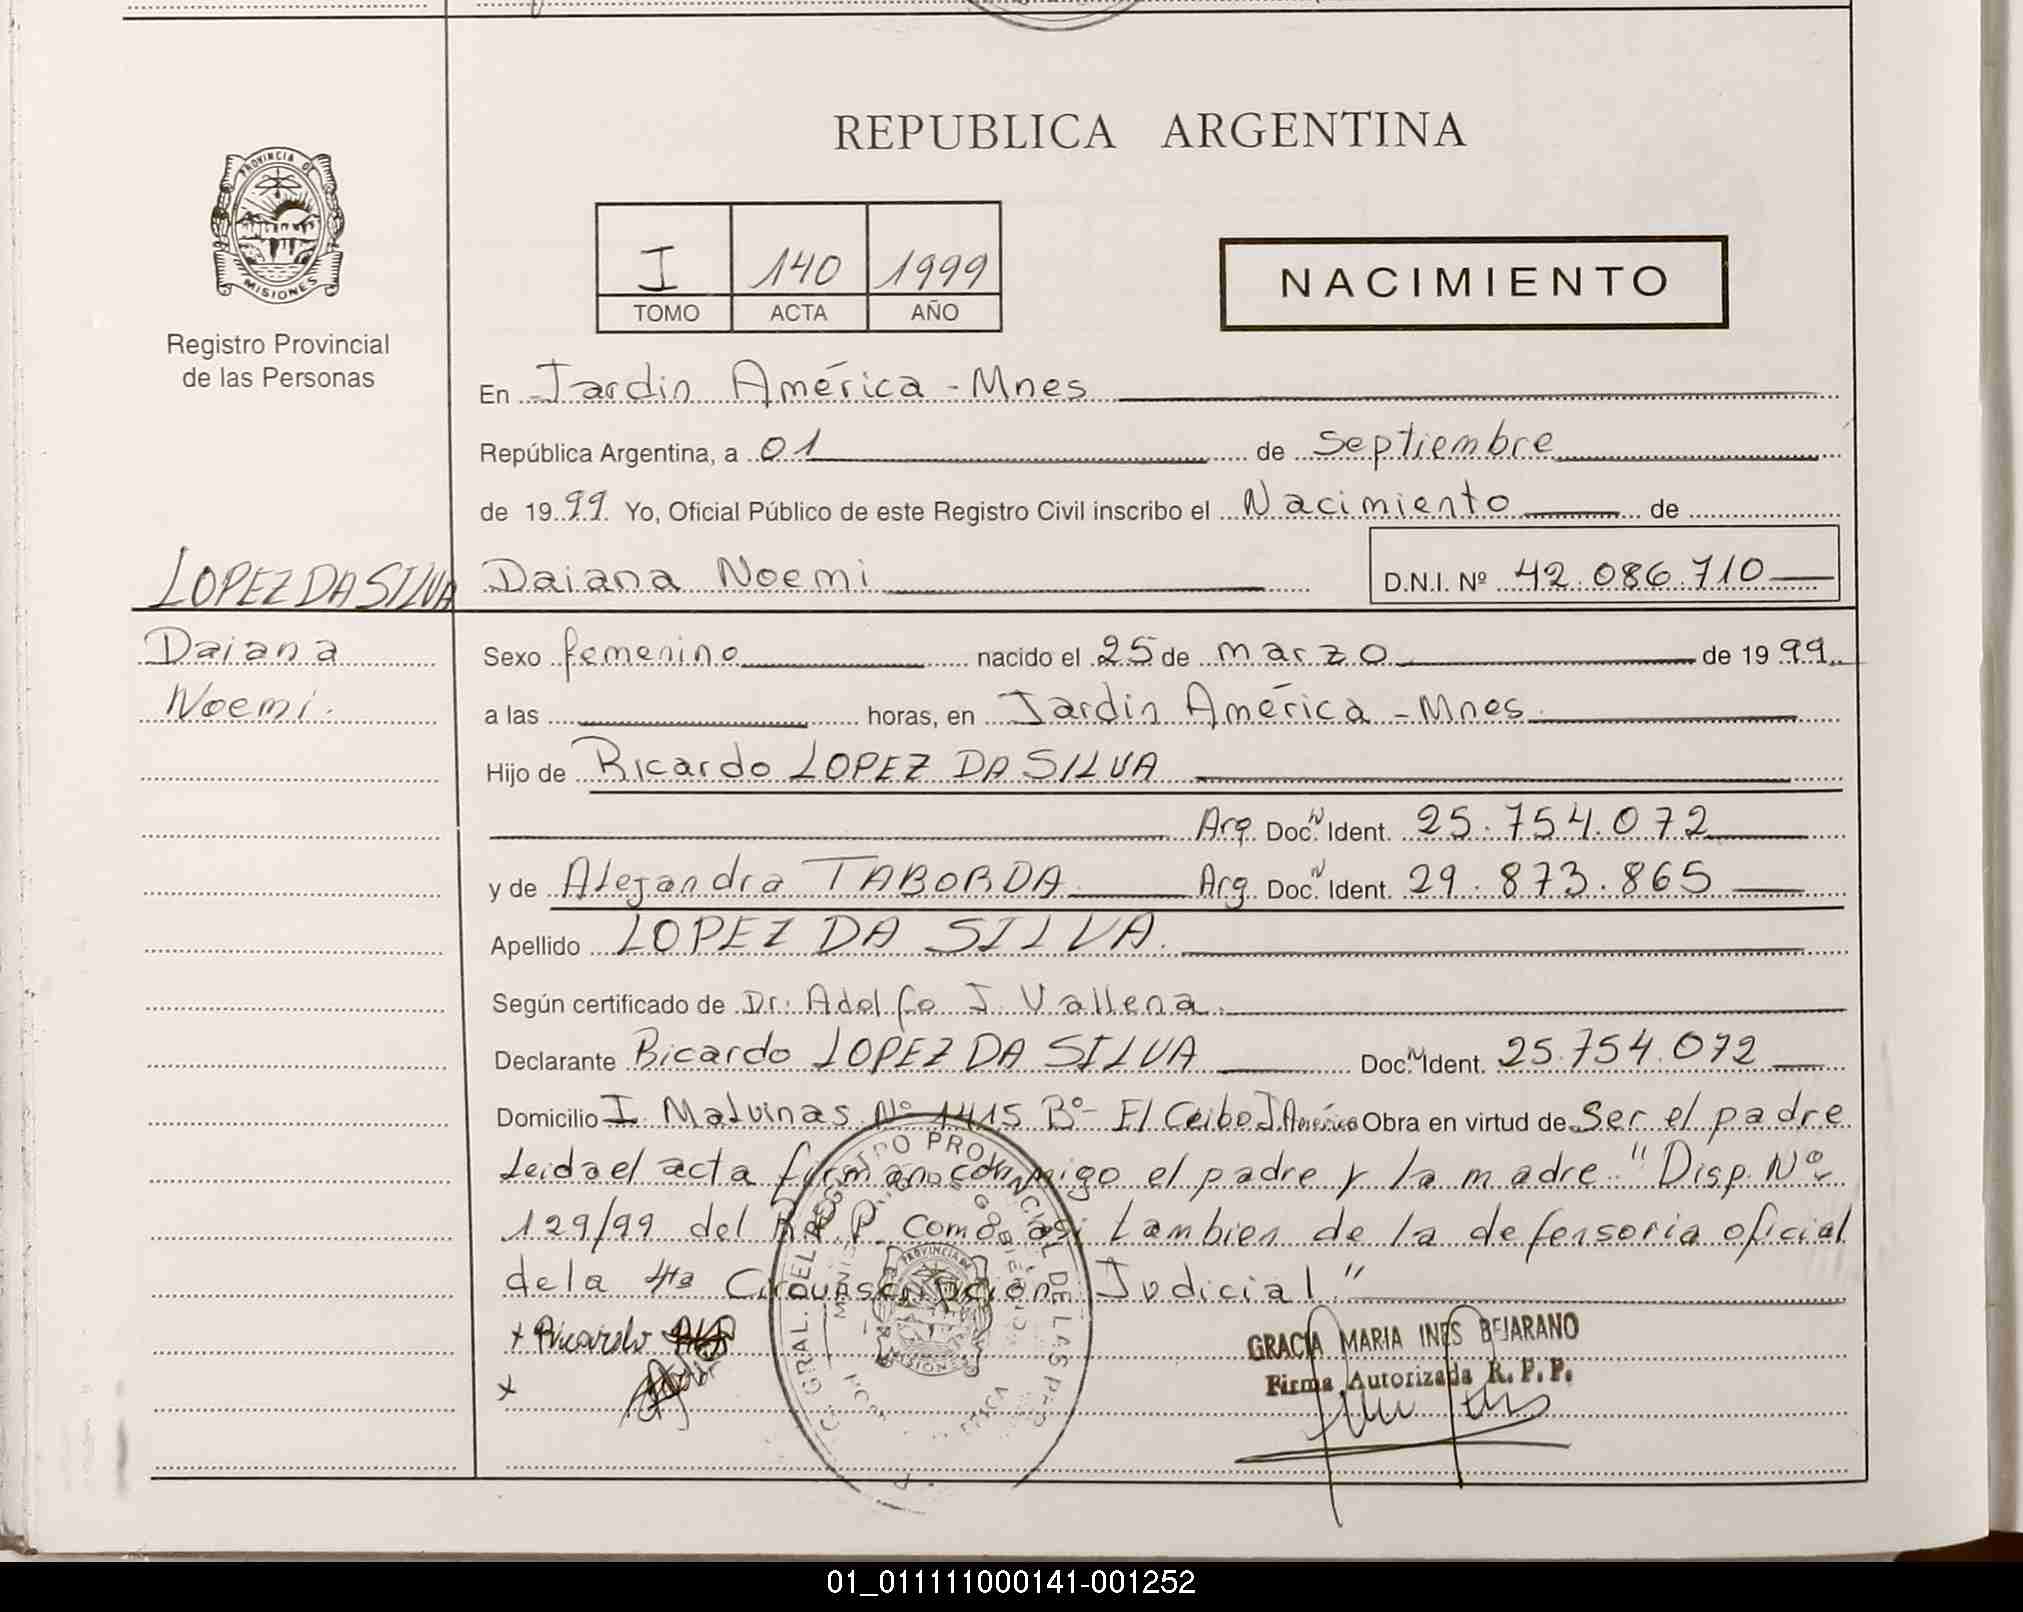 REPUBLICA ARGENTINA
PROVINCIA DE
MISIONES
Registro Provincial
de las Personas
I 140 1999
TOMO ACTA AÑO
NACIMIENTO
En Jardin América - Mnes
República Argentina, a 01 de Septiembre
de 1999 Yo, Oficial Público de este Registro Civil inscribo el Nacimiento de
LOPEZ DA SILVA Daiana Noemi D.N.I. Nº 42.086.710
Daiana
Noemi.
Sexo femenino nacido el 25 de marzo de 1999
a las horas, en Jardin América - Mnes.
Hijo de Ricardo LOPEZ DA SILVA
Arg. Doc. N Ident. 25.754.072
y de Alejandra TABORDA Arg. Doc. N Ident. 29.873.865
Apellido LOPEZ DA SILVA.
Según certificado de Dr. Adolfo J. Vallena.
Declarante Ricardo LOPEZ DA SILVA Doc. N Ident. 25.754.072
Domicilio I. Malvinas Nº 1415 Bº- El Ceibo J América Obra en virtud de Ser el padre
Leida el acta firman conmigo el padre y la madre "Disp. Nº
129/99 del R.P.P. como asi tambien de la defensoria oficial
de la 4ta Circunscripcion Judicial"
x Ricardo
x
GRAL. DEL REGISTRO PROVINCIAL DE LAS
PROVINCIA DE
MISIONES
GRACIA MARIA INES BEJARANO
Firma Autorizada R. P. P.
01_011111000141-001252